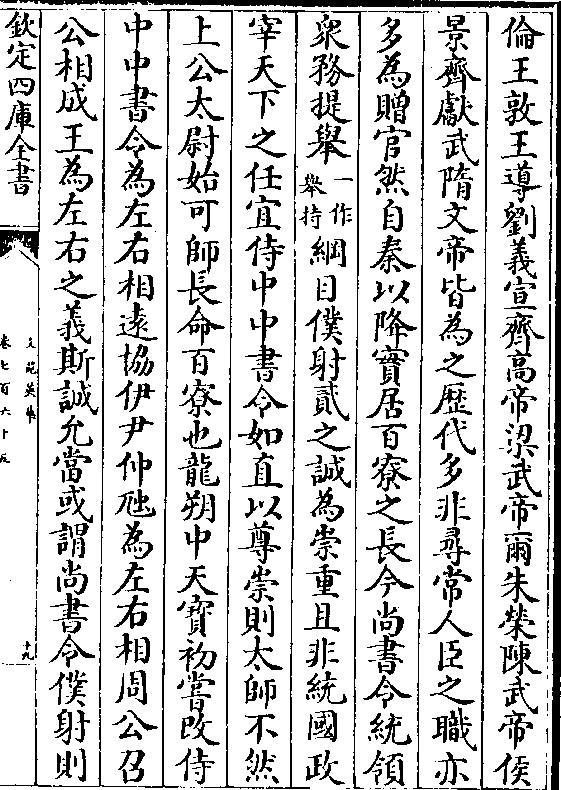 倫王敦王導劉義宣齊高帝梁武帝爾朱榮陳武帝侯
景齊獻武隋文帝皆為之歴代多非尋常人臣之職亦
多為贈官然自秦以降實居百寮之長今尚書令統領
衆務提舉一作舉持綱目僕射貳之誠為崇重且非統國政
宰天下之任宜侍中中書令如直以尊崇則太師不然
上公太尉始可師長命百寮也龍朔中天寳初嘗改侍
中中書令為左右相遠協伊尹仲虺為左右相周公召
公相成王為左右之義斯誠允當或謂尚書令僕射則
欽定四庫全書
文苑英華
卷七百六十五
十九